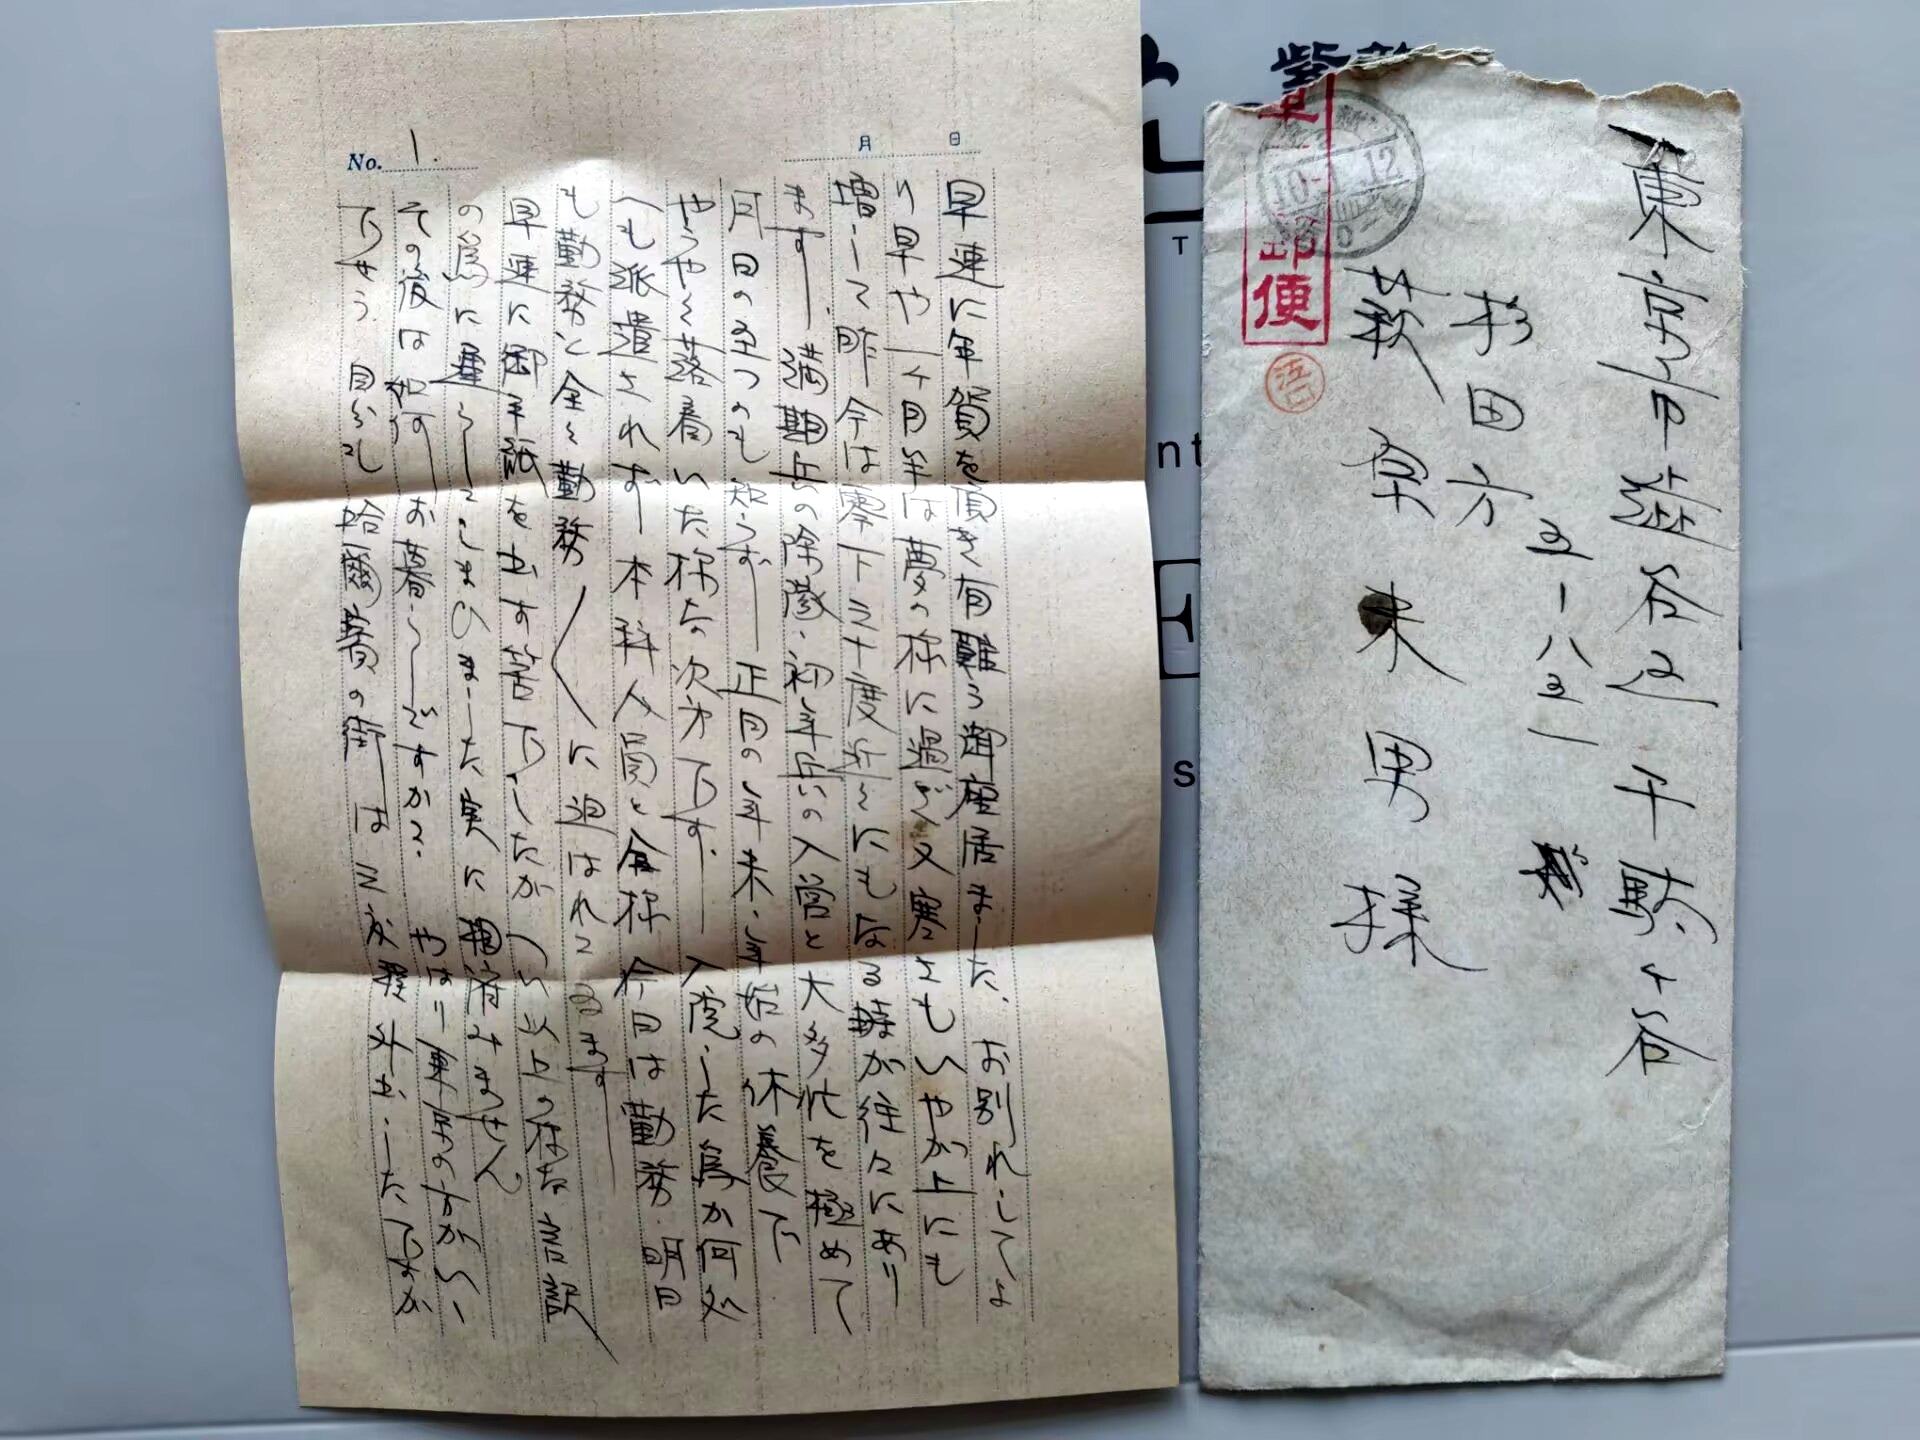 No. 1.
月 日
早速に年賀を頂き有難う御座居ました、お別れしてよ
り早や一ヶ月半は夢の様に過ぎ又寒さもいやが上にも
増して昨今は零下三十度近くにもなる時が往々にあり
ます 満期兵の除隊、初年兵の入営と大多忙を極めて
月日の立つのも知らず 正月の年末年始の休養で
やうやく落着いた様な次第です、入院した為か何処
へも派遣されず 本科人員と全様 今日は勤務、明日
も勤務と全く勤務〱に追はれて居ます
早速に御手紙を出す筈でしたがつい以上の様な言訳
の為に遅らしてしまひました実に相済みません
その後は如何お暮らしですか？ やはり東京の方がいゝ
でせう 自分も哈爾賓の街は三度程外出しましたですが
東京市澁谷区千駄ヶ谷
五ー八五一
杉田方
萩原末男様
郵便
10- 12